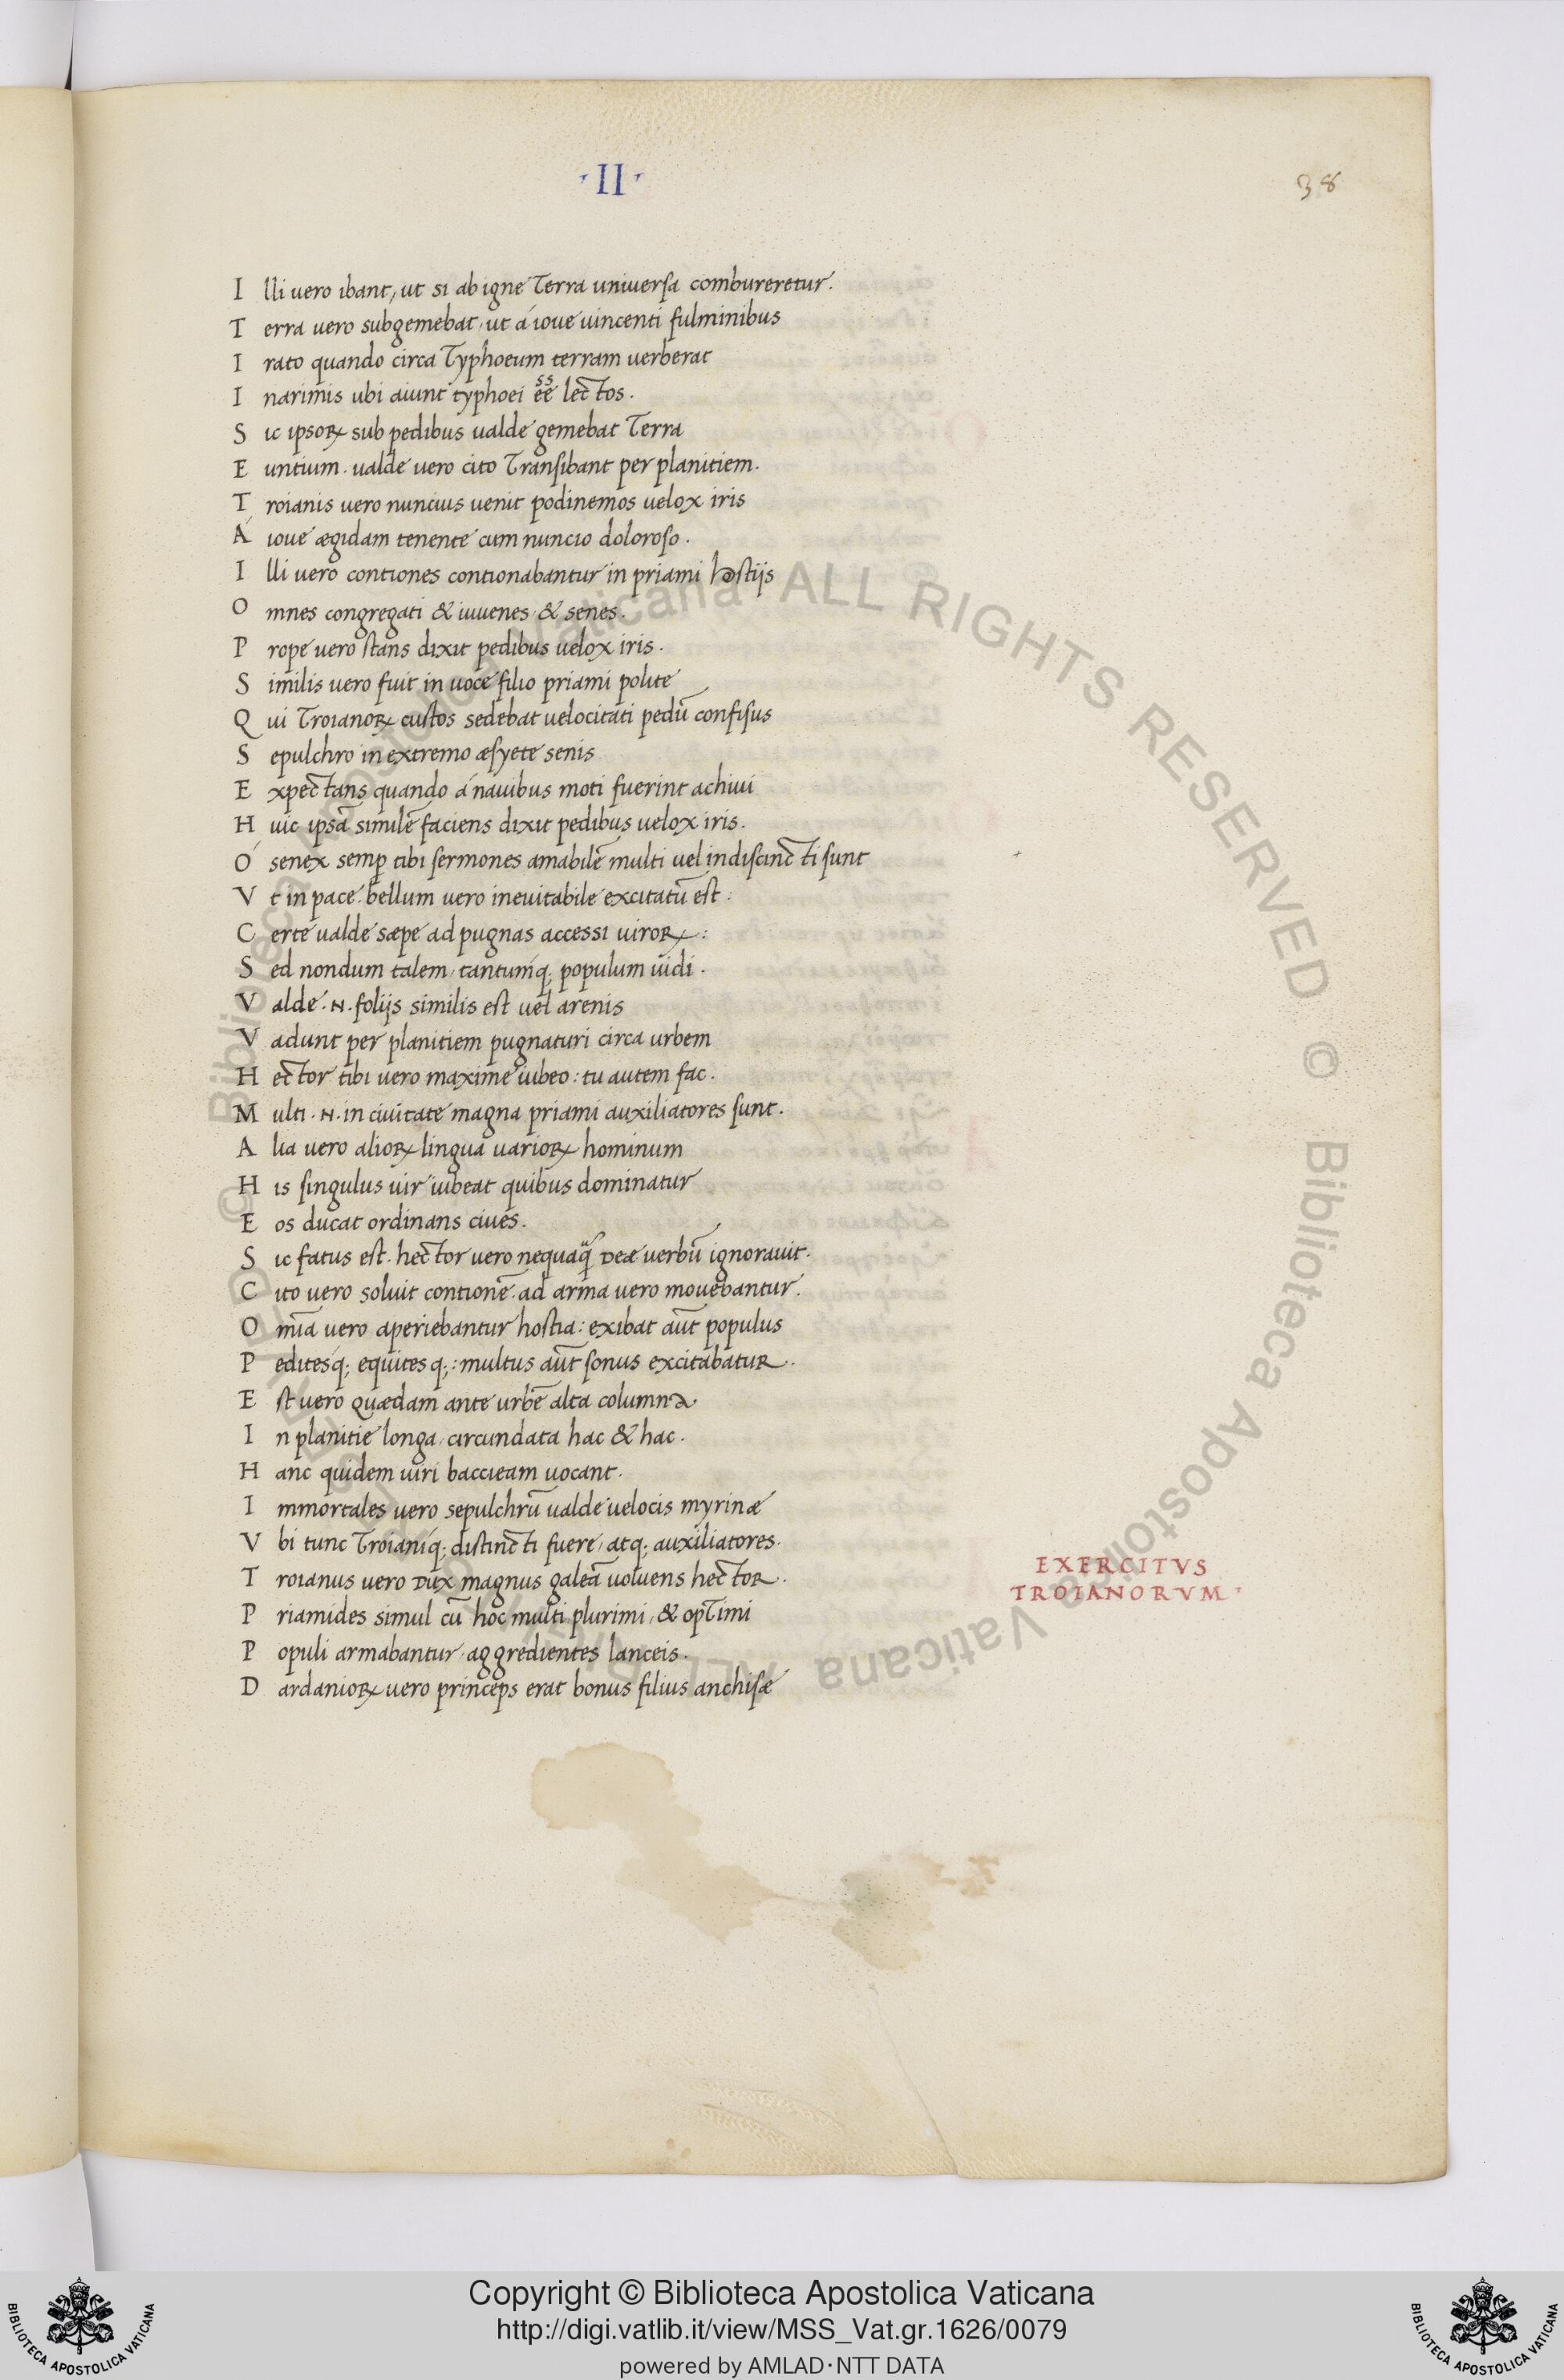 ·II·
38
Illi uero ibant, ut si ab igne Terra uniuersa combureretur.
Terra uero subgemebat, ut á ioue uincenti fulminibus
Irato quando circa Typhoeum terram uerberat
Inarimis ubi aiunt typhoei ee̅ lectos.
ss
Sic ipsoꝝ sub pedibus ualde gemebat Terra
Euntium. ualde uero cito Transibant per planitiem.
Troianis uero nuncius uenit podinemos uelox iris
Á ioue ægidam tenente cum nuncio doloroso.
Illi uero contiones contionabantur in priami hostijs
Omnes congregati & iuuenes, & senes.
Prope uero stans dixit pedibus uelox iris.
Similis uero fuit in uoce filio priami polite
Qui Troianoꝝ custos sedebat uelocitati pedū confisus
Sepulchro in extremo æsyete senis
Expectans quando á nauibus moti fuerint achiui
Huic ipsā similē faciens dixit pedibus uelox iris.
Ó senex semꝑ tibi sermones amabilē multi uel indiscincti sunt
Vt in pace. bellum uero ineuitabile excitatū est.
Certe ualde sæpe ad pugnas accessi uiroꝝ:
Sed nondum talem, tantumq; populum uidi.
Valde .N. folijs similis est uel arenis
Vadunt per planitiem pugnaturi circa urbem
Hector tibi uero maxime iubeo: tu autem fac.
Multi .N. in ciuitate magna priami auxiliatores sunt.
Alia uero alioꝝ lingua uarioꝝ hominum
His singulus uir iubeat quibus dominatur
Eos ducat ordinans ciues.
Sic fatus est. hector uero nequaq̃ Deæ uerbū ignorauit.
Cito uero soluit contionē. ad arma uero mouebantur.
Om̄ia uero aperiebantur hostia: exibat aūt populus
Peditesq; equitesq;: multus aūt sonus excitabatur.
Est uero quædam ante urbē alta columna
In planitie longa, circundata hac & hac.
Hanc quidem uiri baccieam uocant.
Immortales uero sepulchrū ualde uelocis myrinæ
Vbi tunc Troianiq; distincti fuere, atq; auxiliatores.
Troianus uero Dux magnus galeā uoluens hector.
Priamides simul cū hoc multi plurimi, & optimi
Populi armabantur, aggredientes lanceis.
Dardanioꝝ uero princeps erat bonus filius anchisæ
EXERCITVS
TROIANORVM.
© Biblioteca Apostolica Vaticana ALL RIGHTS RESERVED © Biblioteca Apostolica Vaticana ALL RIGHTS RESERVED
Copyright © Biblioteca Apostolica Vaticana
http://digi.vatlib.it/view/MSS_Vat.gr.1626/0079
powered by AMLAD·NTT DATA
BIBLIOTECA APOSTOLICA VATICANA
BIBLIOTECA APOSTOLICA VATICANA